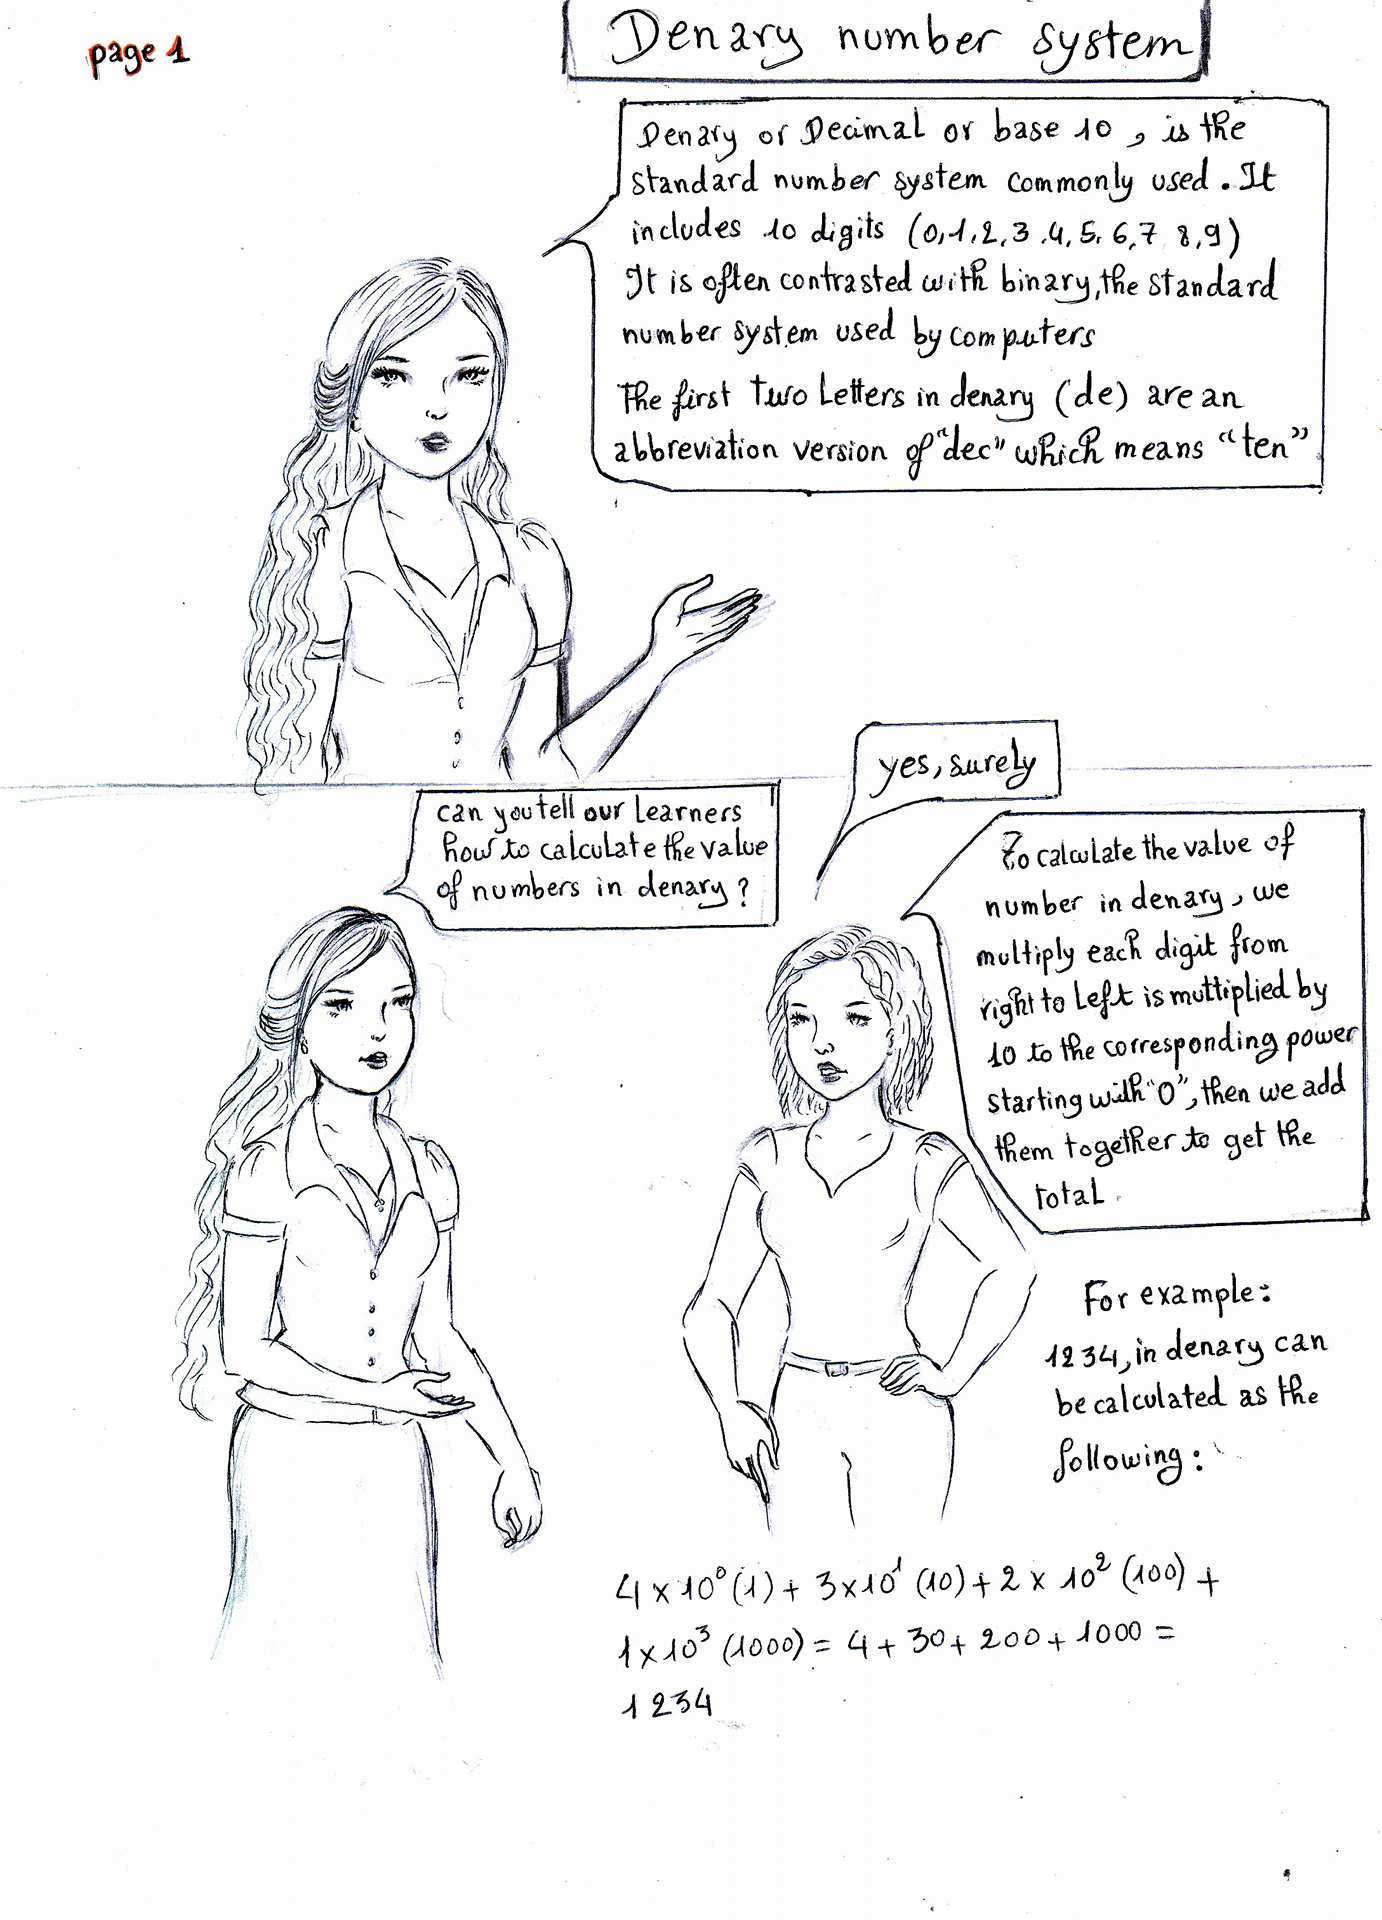 page 1
Denary number system
Denary or Decimal or base 10 , is the
standard number system commonly used. It
includes 10 digits (0,1,2,3.4,5.6,7 8,9)
It is often contrasted with binary, the standard
number system used by computers
The first two Letters in denary (de) are an
abbreviation version of "dec" which means "ten"
can you tell our Learners
how to calculate the value
of numbers in denary?
yes, surely
To calculate the value of
number in denary, we
multiply each digit from
right to Left is multiplied by
10 to the corresponding power
starting with "0", then we add
them together to get the
total.
For example:
1234, in denary can
be calculated as the
following:
4 × 10⁰ (1) + 3×10¹ (10) + 2 × 10² (100) +
1 × 10³ (1000) = 4 + 30 + 200 + 1000 =
1234